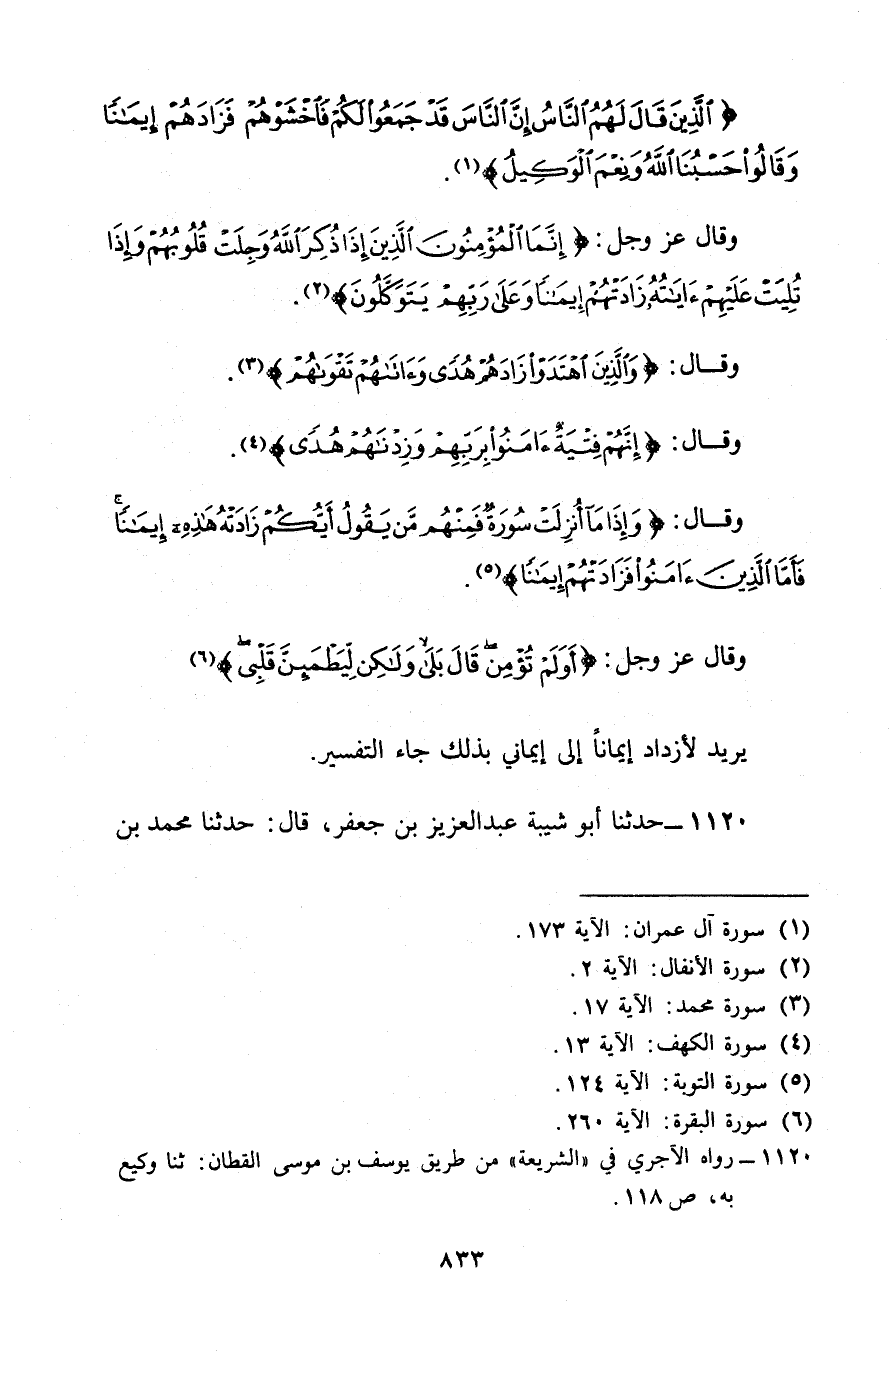 ﴿ ٱلَّذِينَ قَالَ لَهُمُ ٱلنَّاسُ إِنَّ ٱلنَّاسَ قَدْ جَمَعُوا۟ لَكُمْ فَٱخْشَوْهُمْ فَزَادَهُمْ إِيمَـٰنًا
وَقَالُوا۟ حَسْبُنَا ٱللَّهُ وَنِعْمَ ٱلْوَكِيلُ ﴾(١).
وقال عز وجل: ﴿ إِنَّمَا ٱلْمُؤْمِنُونَ ٱلَّذِينَ إِذَا ذُكِرَ ٱللَّهُ وَجِلَتْ قُلُوبُهُمْ وَإِذَا
تُلِيَتْ عَلَيْهِمْ ءَايَـٰتُهُۥ زَادَتْهُمْ إِيمَـٰنًا وَعَلَىٰ رَبِّهِمْ يَتَوَكَّلُونَ ﴾(٢).
وقـال: ﴿ وَٱلَّذِينَ ٱهْتَدَوْا۟ زَادَهُمْ هُدًى وَءَاتَىٰهُمْ تَقْوَىٰهُمْ ﴾(٣).
وقـال: ﴿ إِنَّهُمْ فِتْيَةٌ ءَامَنُوا۟ بِرَبِّهِمْ وَزِدْنَـٰهُمْ هُدًى ﴾(٤).
وقـال: ﴿ وَإِذَا مَآ أُنزِلَتْ سُورَةٌ فَمِنْهُم مَّن يَقُولُ أَيُّكُمْ زَادَتْهُ هَـٰذِهِۦٓ إِيمَـٰنًا ۚ
فَأَمَّا ٱلَّذِينَ ءَامَنُوا۟ فَزَادَتْهُمْ إِيمَـٰنًا ﴾(٥).
وقال عز وجل: ﴿ أَوَلَمْ تُؤْمِن ۖ قَالَ بَلَىٰ وَلَـٰكِن لِّيَطْمَئِنَّ قَلْبِى ۖ ﴾(٦)
يريد لأزداد إيماناً إلى إيماني بذلك جاء التفسير.
١١٢٠ ـ حدثنا أبو شيبة عبدالعزيز بن جعفر، قال: حدثنا محمد بن
(١) سورة آل عمران: الآية ١٧٣.
(٢) سورة الأنفال: الآية ٢.
(٣) سورة محمد: الآية ١٧.
(٤) سورة الكهف: الآية ١٣.
(٥) سورة التوبة: الآية ١٢٤.
(٦) سورة البقرة: الآية ٢٦٠.
١١٢٠ ـ رواه الآجري في «الشريعة» من طريق يوسف بن موسى القطان: ثنا وكيع
به، ص ١١٨.
٨٣٣